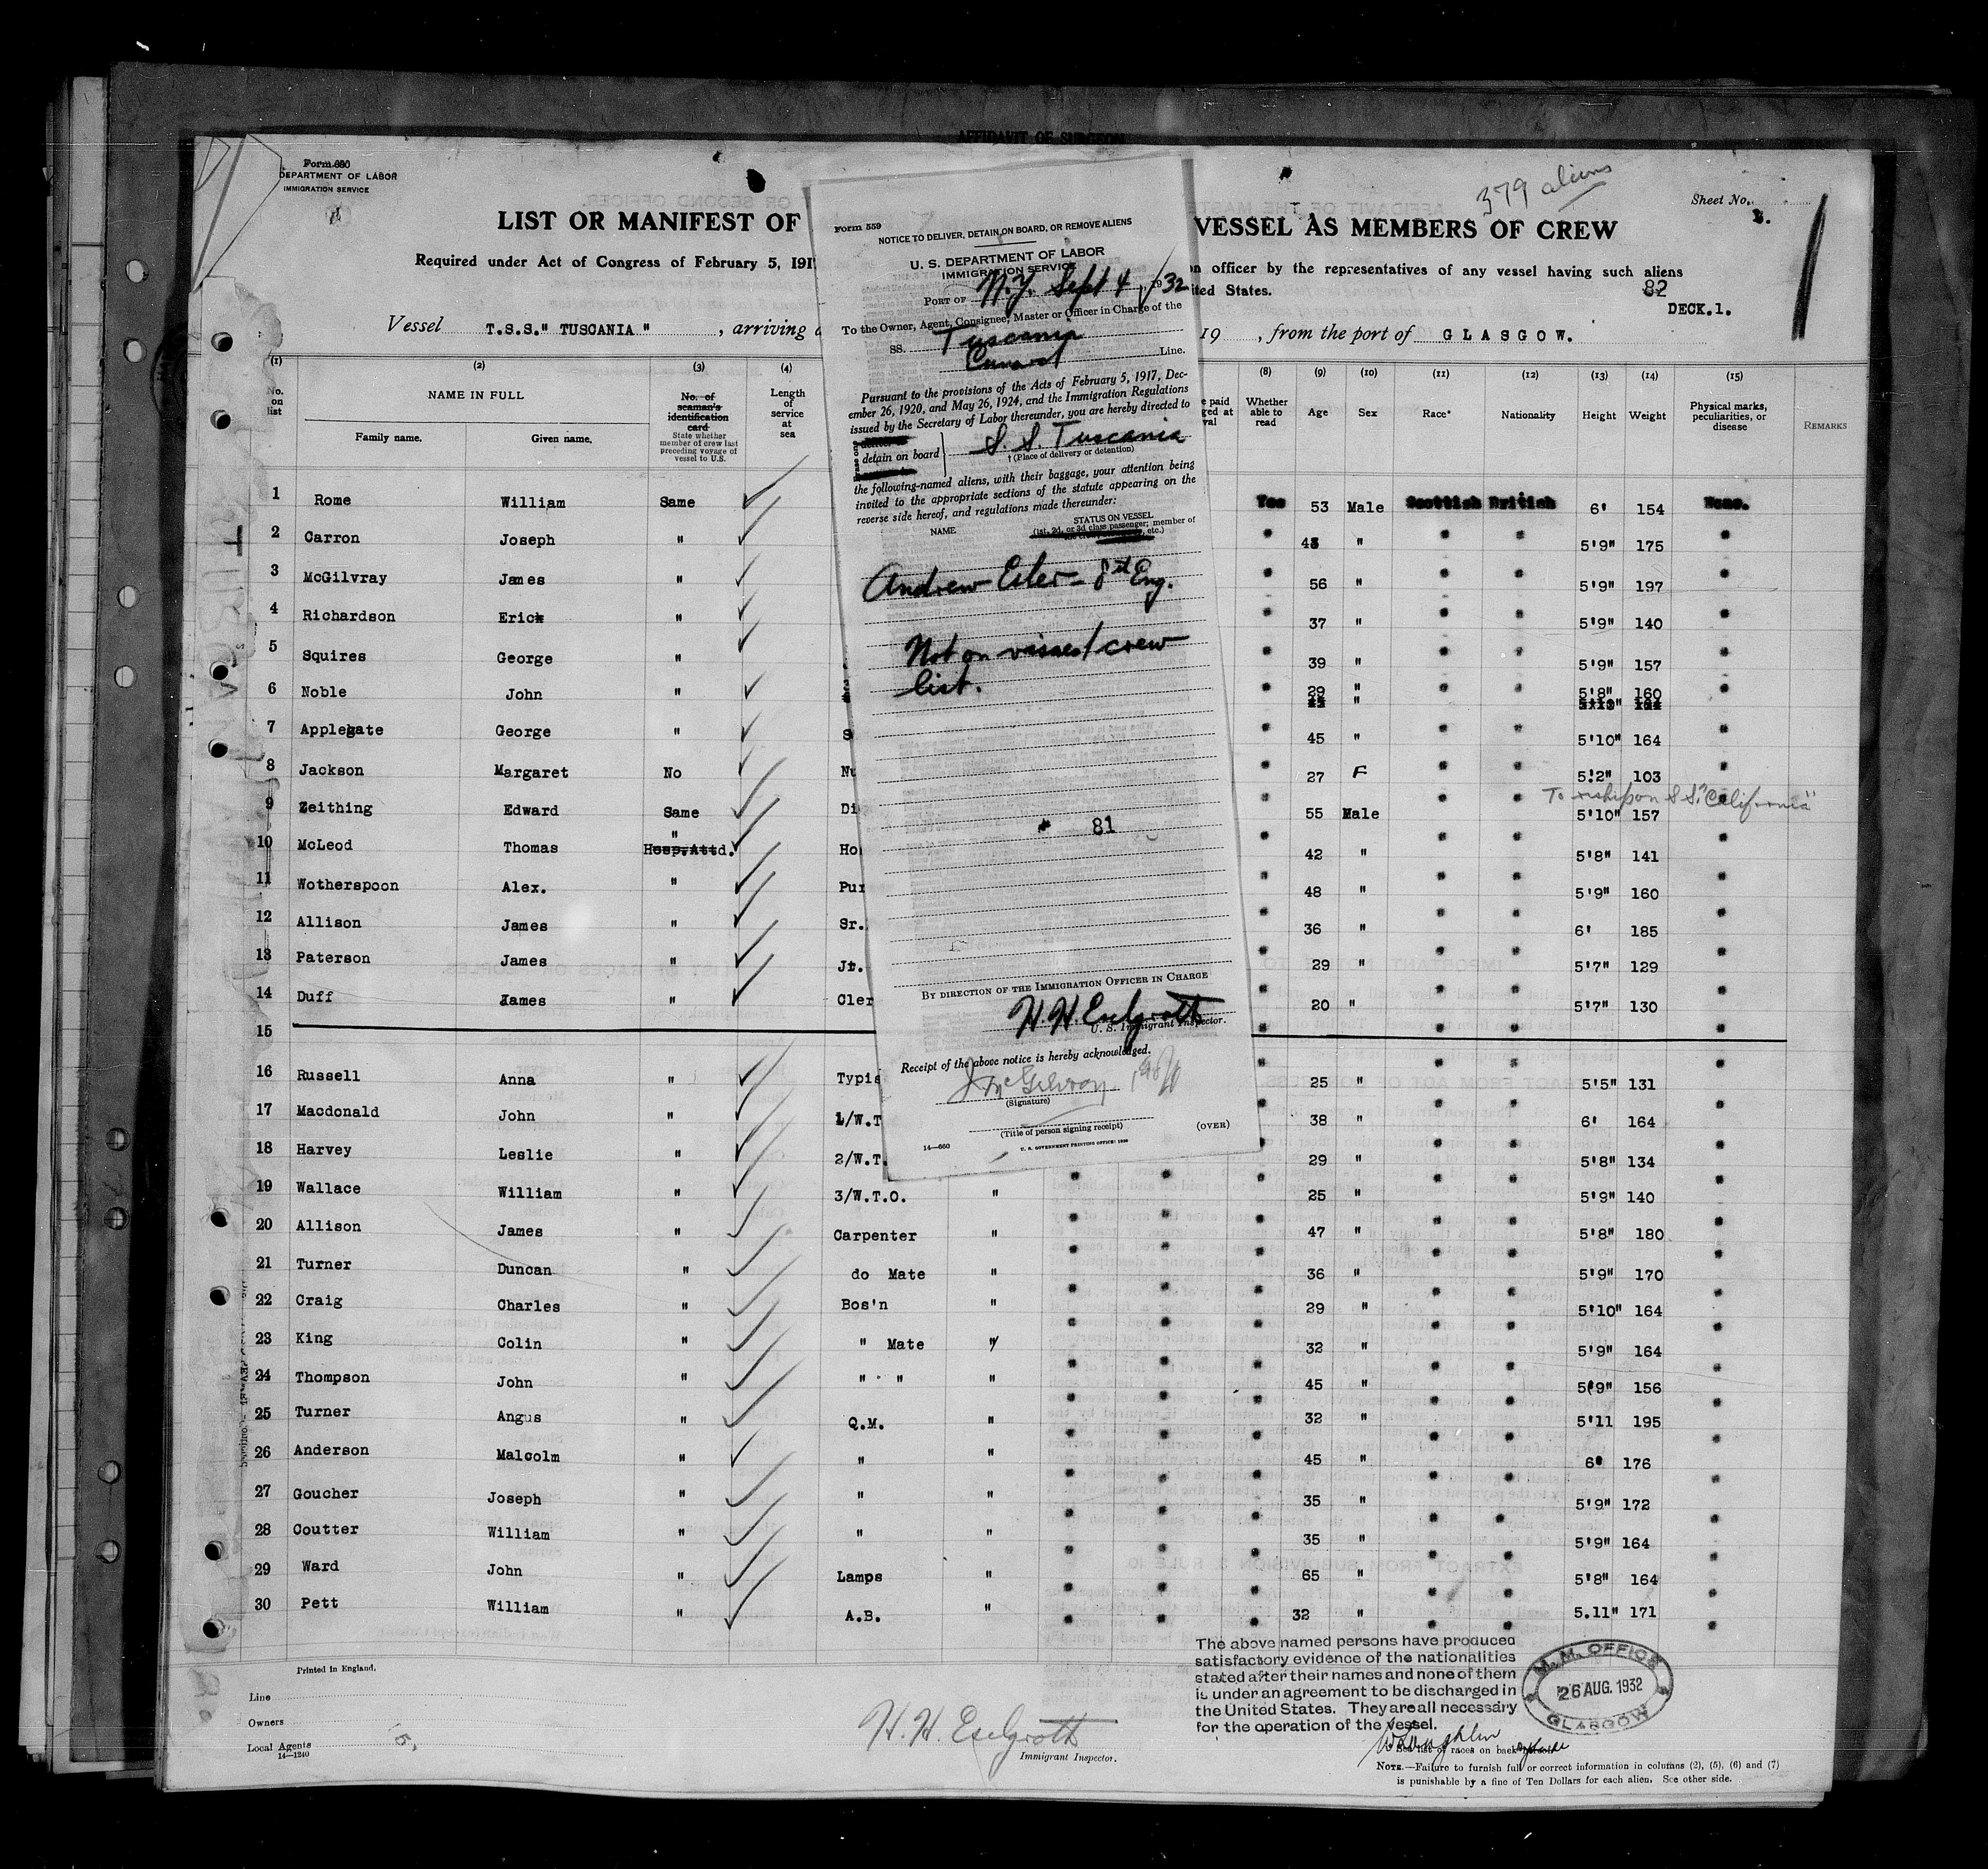 AFFIDAVIT OF SURGEON
Form 680
DEPARTMENT OF LABOR
IMMIGRATION SERVICE
379 aliens
Sheet No.
1.
LIST OR MANIFEST OF
VESSEL AS MEMBERS OF CREW
Required under Act of Congress of February 5, 191
n officer by the representatives of any vessel having such aliens
ited States.
82
DECK.1.
Vessel T.S.S." TUSCANIA ", arriving a
19 , from the port of GLASGOW.
Form 559
NOTICE TO DELIVER, DETAIN ON BOARD, OR REMOVE ALIENS
U. S. DEPARTMENT OF LABOR
IMMIGRATION SERVICE
PORT OF N.Y. Sept 4, 1932
To the Owner, Agent, Consignee, Master or Officer in Charge of the
SS. Tuscania
Cunard Line.
Pursuant to the provisions of the Acts of February 5, 1917, Dec-
ember 26, 1920, and May 26, 1924, and the Immigration Regulations
issued by the Secretary of Labor thereunder, you are hereby directed to
detain on board S. S. Tuscania
† (Place of delivery or detention)
the following-named aliens, with their baggage, your attention being
invited to the appropriate sections of the statute appearing on the
reverse side hereof, and regulations made thereunder:
NAME
STATUS ON VESSEL
(1st, 2d, or 3d class passenger; member of
etc.)
Andrew Esler - 8th Eng.
Not on vissed crew
list.
81
BY DIRECTION OF THE IMMIGRATION OFFICER IN CHARGE
H. H. Eselgroth
U. S. Immigrant Inspector.
Receipt of the above notice is hereby acknowledged.
J McGilvray
(Signature)
(Title of person signing receipt)
(OVER)
14—660
U. S. GOVERNMENT PRINTING OFFICE: 1930
(1) (2) (3) (4) (8) (9) (10) (11) (12) (13) (14) (15)
No. on list
NAME IN FULL
Family name. Given name.
No. of seaman's identification card
State whether member of crew last preceding voyage of vessel to U.S.
Length of service at sea
e paid
ged at
val
Whether able to read
Age
Sex
Race*
Nationality
Height
Weight
Physical marks, peculiarities, or disease
REMARKS
1 Rome William Same Yes 53 Male Scottish British 6' 154 None.
2 Carron Joseph " " 43 " " " 5'9" 175 "
3 McGilvray James " " 56 " " " 5'9" 197 "
4 Richardson Erick " " 37 " " " 5'9" 140 "
5 Squires George " " 39 " " " 5'9" 157 "
6 Noble John " " 29 " " " 5'8" 160 "
7 Applegate George " S " 45 " " " 5'10" 164 "
8 Jackson Margaret No Nu " 27 F " " 5'2" 103 "
To reship on S.S. "California"
9 Zeithing Edward Same Di " 55 Male " " 5'10" 157 "
10 McLeod Thomas " Hosp.Attd. Ho " 42 " " " 5'8" 141 "
11 Wotherspoon Alex. " Pur " 48 " " " 5'9" 160 "
12 Allison James " Sr. " 36 " " " 6' 185 "
13 Paterson James " Jr. " 29 " " " 5'7" 129 "
14 Duff James " Cler " 20 " " " 5'7" 130 "
15
16 Russell Anna " Typis " 25 " " " 5'5" 131 "
17 Macdonald John " 1/W.T " 38 " " " 6' 164 "
18 Harvey Leslie " 2/W.T. " 29 " " " 5'8" 134 "
19 Wallace William " 3/W.T.O. " " " " 25 " " " 5'9" 140 "
20 Allison James " Carpenter " " " " 47 " " " 5'8" 180 "
21 Turner Duncan " do Mate " " " " 36 " " " 5'9" 170 "
22 Craig Charles " Bos'n " " " " 29 " " " 5'10" 164 "
23 King Colin " " Mate " " " " 32 " " " 5'9" 164 "
24 Thompson John " " " " " " " 45 " " " 5'9" 156 "
25 Turner Angus " Q.M. " " " " 32 " " " 5'11 195 "
26 Anderson Malcolm " " " " " " 45 " " " 6' 176 "
27 Goucher Joseph " " " " " " 35 " " " 5'9" 172 "
28 Coutter William " " " " " " 35 " " " 5'9" 164 "
29 Ward John " Lamps " " " " 65 " " " 5'8" 164 "
30 Pett William " A.B. " " " " 32 " " " 5.11" 171 "
Printed in England.
Line
Owners
Local Agents
14—1240
H. H. Eselgroth
Immigrant Inspector.
The above named persons have produced
satisfactory evidence of the nationalities
stated after their names and none of them
is under an agreement to be discharged in
the United States. They are all necessary
for the operation of the vessel.
M.M. OFFICE
26 AUG. 1932
GLASGOW
See list of races on back
NOTE.—Failure to furnish full or correct information in columns (2), (5), (6) and (7)
is punishable by a fine of Ten Dollars for each alien. See other side.